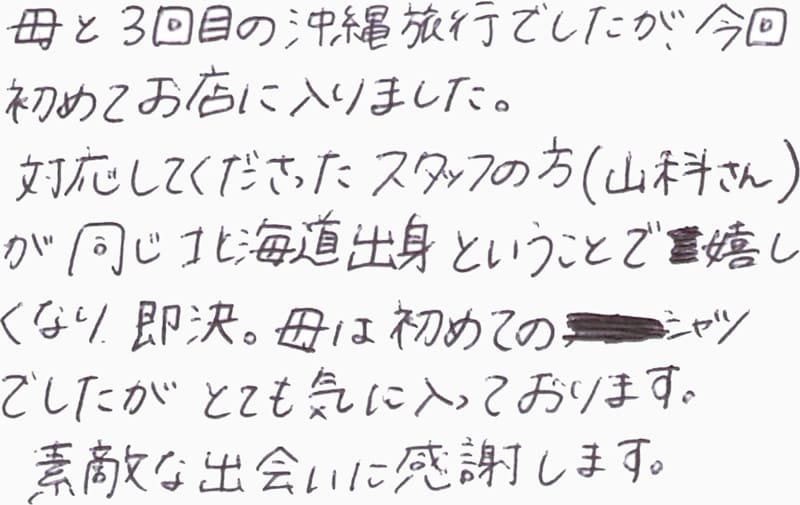 母と3回目の沖縄旅行でしたが、今回
初めてお店に入りました。
対応してくださったスタッフの方(山科さん)
が同じ北海道出身ということで嬉し
くなり、即決。母は初めてのシャツ
でしたがとても気に入っております。
素敵な出会いに感謝します。